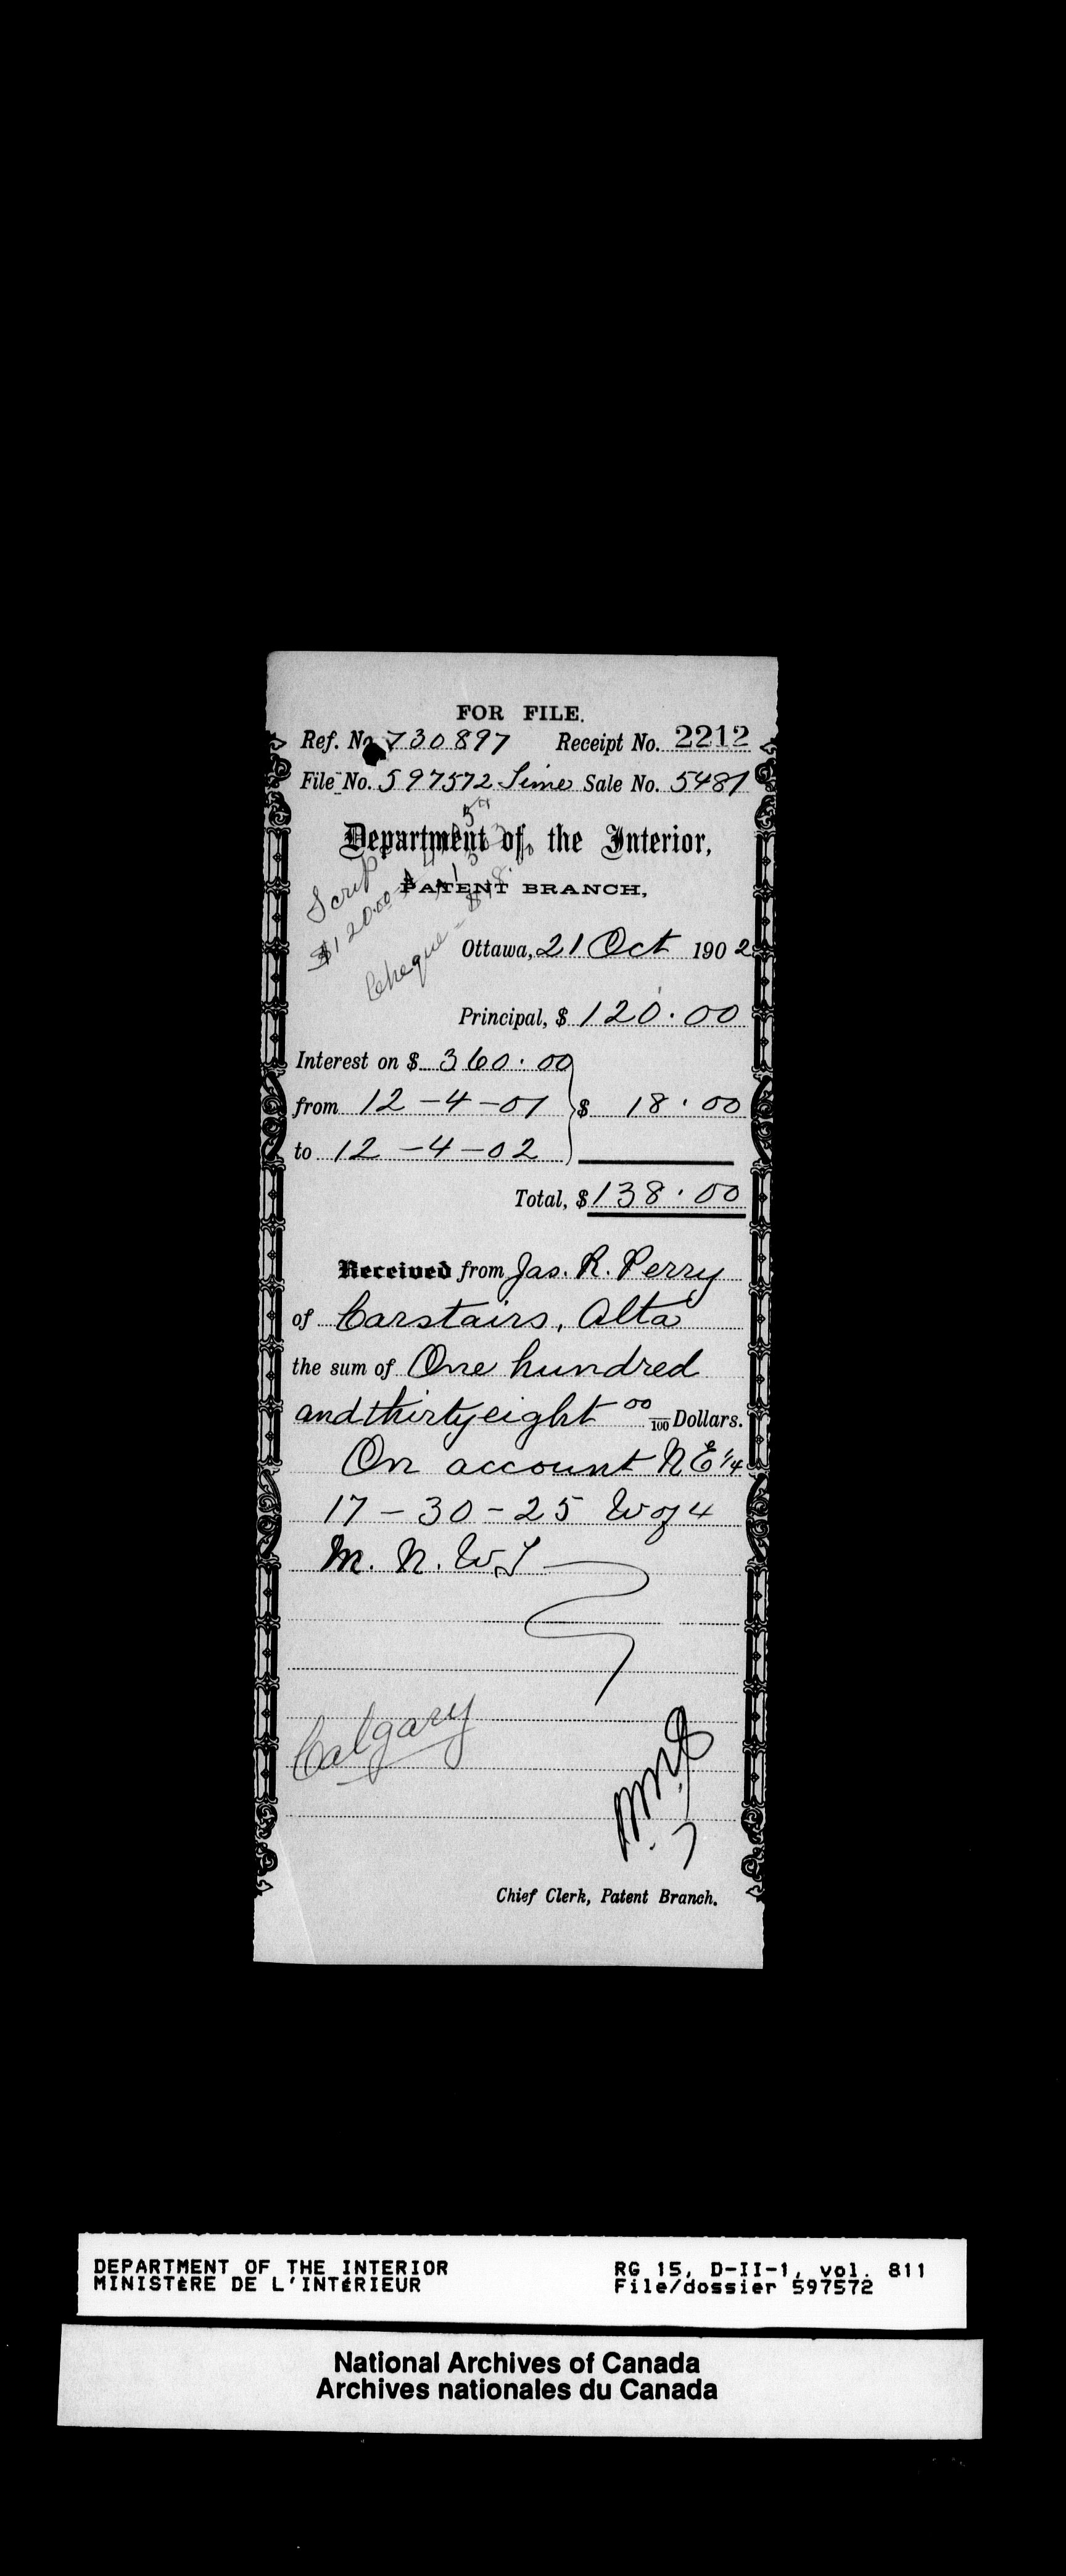 FOR FILE.
Ref. No. 730897 Receipt No. 2212
File No. 597572 Sime Sale No. 5481
Department of the Interior,
PATENT BRANCH,
Scrip
$120.00
Cheque - $18.
Ottawa, 21 Oct 1902
Principal, $ 120.00
Interest on $ 360.00
from 12-4-01 $ 18.00
to 12-4-02
Total, $ 138.00
Received from Jas. R. Perry
of Carstairs, Alta
the sum of One hundred
and thirty eight 00/100 Dollars.
On account N E 1/4
17-30-25 W of 4
M. N. W. T
Calgary
Chief Clerk, Patent Branch.
DEPARTMENT OF THE INTERIOR RG 15, D-II-1, vol. 811
MINISTÈRE DE L'INTÉRIEUR File/dossier 597572
National Archives of Canada
Archives nationales du Canada